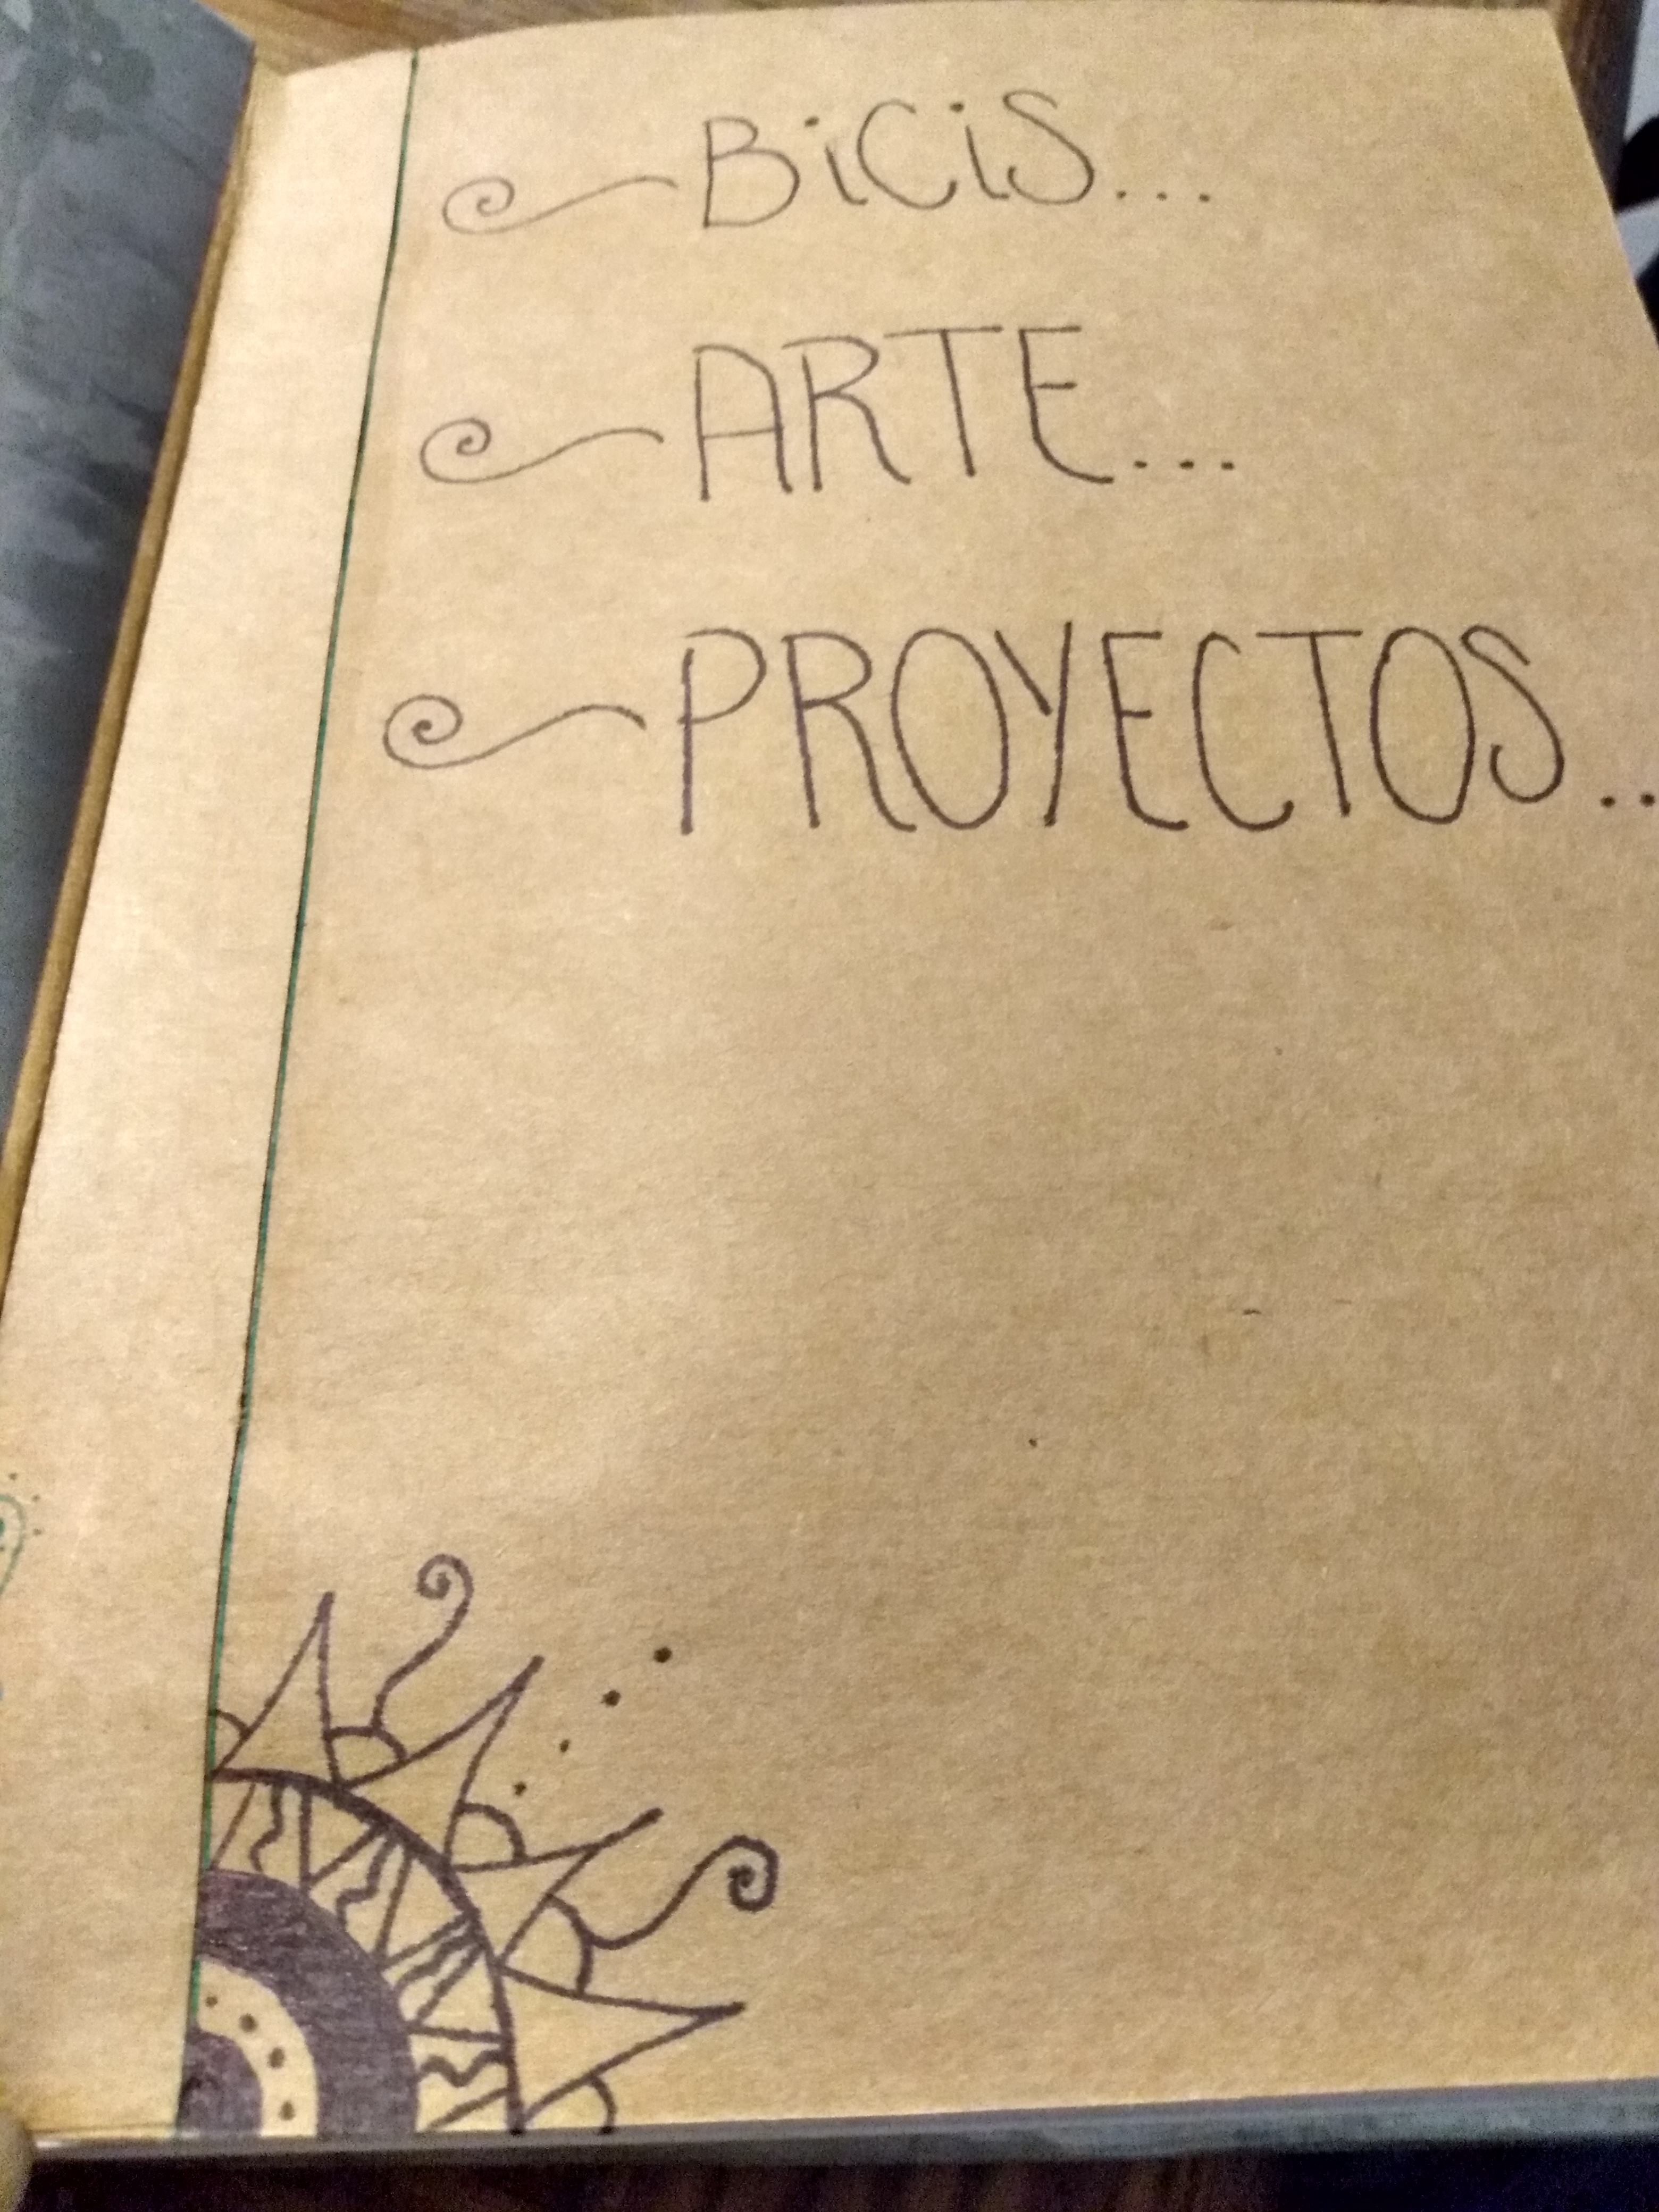 BiCiS...
ARTE...
PROYECTOS..